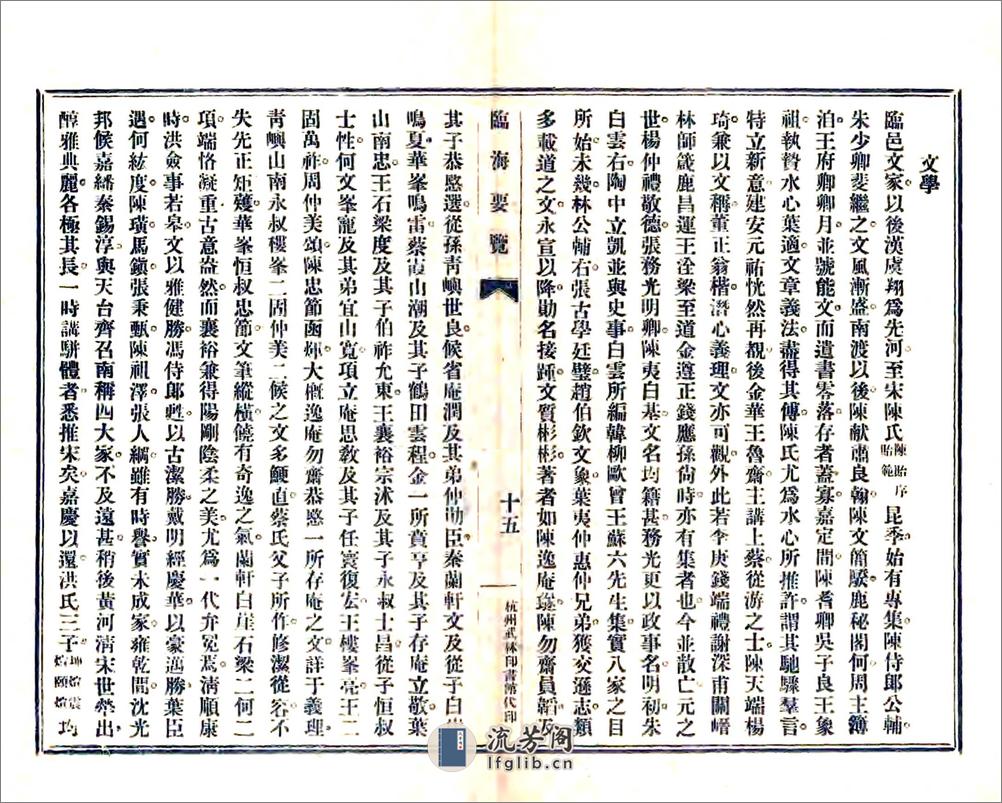 文學
臨邑文家以後漢虞翔爲先河至宋陳氏陳貽序貽範昆季始有專集陳侍郎公輔
朱少卿斐繼之文風漸盛南渡以後陳献肅良翰陳文簡騤鹿秘閣何周主簿
泊王府卿卿月並號能文而遺書零落存者蓋寡嘉定間陳耆卿吳子良王象
祖執贄水心葉適文章義法盡得其傳陳氏尤爲水心所推許謂其馳驟羣言
特立新意建安元祐恍然再覩後金華王魯齋主講上蔡從游之士陳天端楊
琦兼以文稱董正翁楷潛心義理文亦可觀外此若李庚錢端禮謝深甫關嶆
林師蒧鹿昌運王洤梁至道金遵正錢應孫尙時亦有集者也今並散亡元之
世楊仲禮敬德張務光明卿陳夷白基文名均籍甚務光更以政事名明初朱
白雲右陶中立凱並與史事白雲所編韓柳歐曾王蘇六先生集實八家之目
所始未幾林公輔右張古學廷璧趙伯欽文象葉夷仲惠仲兄弟獲交遜志類
多載道之文永宣以降勛名接踵文質彬彬著者如陳逸庵璲陳勿齋員韜及
臨海要覽
十五
杭州武林印書館代印
其子恭愍選從孫靑嶼世良候省庵潤及其弟仲勛臣秦蘭軒文及從子白崖
鳴夏華峯鳴雷蔡霞山潮及其子鶴田雲程金一所賁亨及其子存庵立敬葉
山南忠王石梁度及其子伯祚允東王襄裕宗沭及其子永叔士昌從子恒叔
士性何文峯寵及其弟宜山寬項立庵思敎及其子任寰復宏王樓峯亮王二
固萬祚周仲美頌陳忠節函煇大槪逸庵勿齋恭愍一所存庵之文詳于義理
靑嶼山南永叔樓峯二固仲美二候之文多鯁直蔡氏父子所作修潔從容不
失先正矩矱華峯恒叔忠節文筆縱橫饒有奇逸之氣蘭軒白崖石梁二何二
項端恪凝重古意盎然而襄裕兼得陽剛陰柔之美尤爲一代弁冕焉淸順康
時洪僉事若皋文以雅健勝馮侍郎甦以古潔勝戴明經慶華以豪邁勝葉臣
遇何紘度陳璜馬鎭張秉甄陳祖澤張人綱雖有時譽實未成家雍乾間沈光
邦候嘉繙秦錫淳與天台齊召南稱四大家不及遠甚稍後黃河淸宋世犖出
醇雅典麗各極其長一時講駢體者悉推宋矣嘉慶以還洪氏三子坤煊震煊頤煊均
流芳阁
lfglib.cn